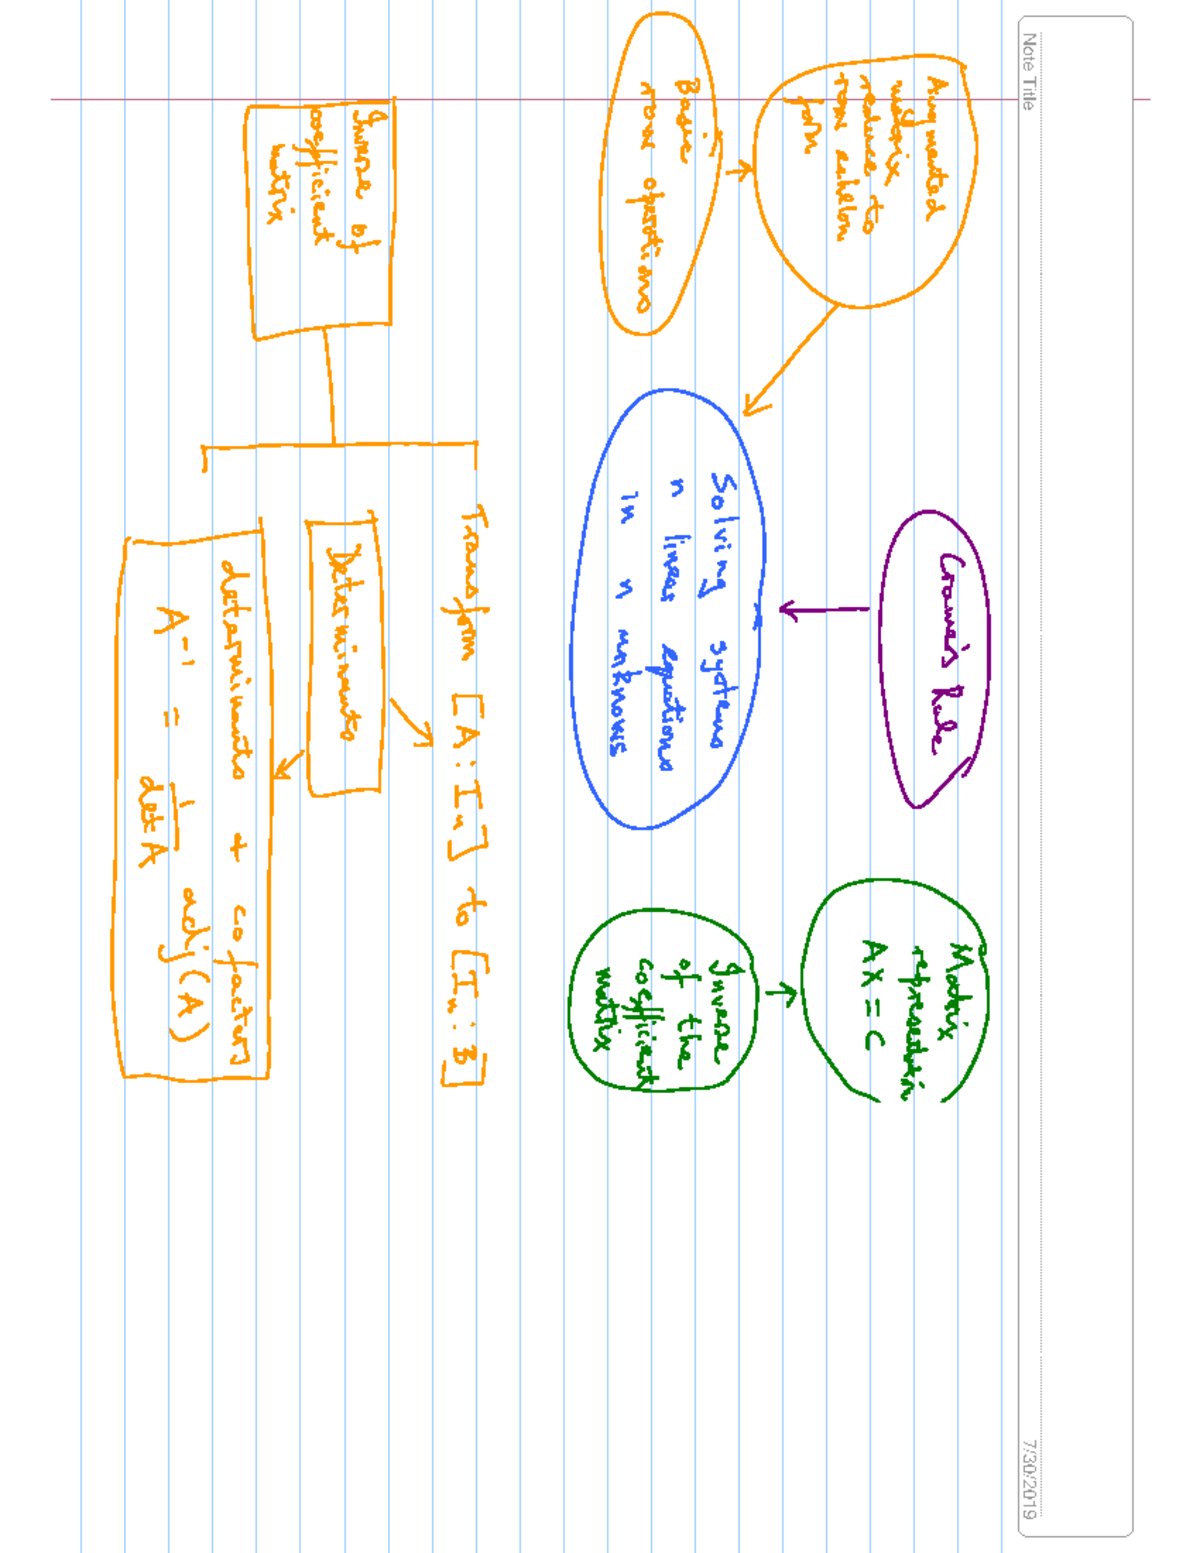 Note Title
7/30/2019
Augmented
matrix
reduce to
row echelon
form
Basic
row operations
Cramer's Rule
Matrix
representation
AX = C
Solving systems
n linear equations
in n unknowns
Inverse
of the
coefficient
matrix
Inverse of
coefficient
matrix
Transform [A : In] to [In : B]
Determinants
determinants + cofactors
A⁻¹ = 1/det A adj(A)